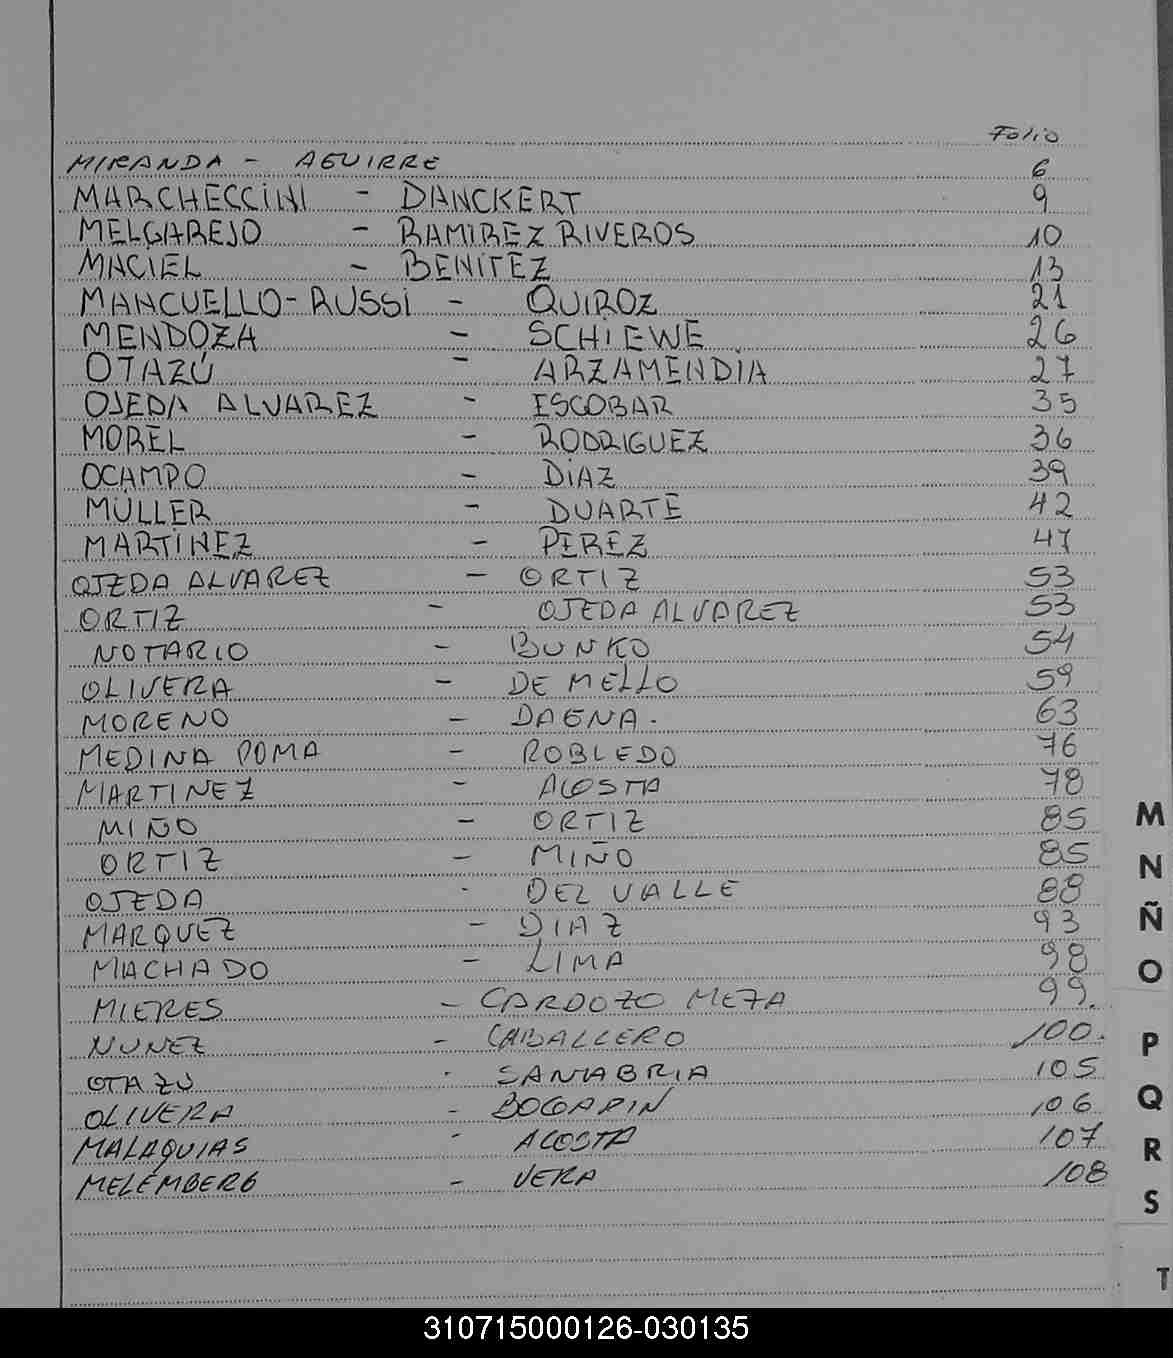 Folio
MIRANDA - AGUIRRE 6
MARCHECCINI - DANCKERT 9
MELGAREJO - RAMIREZ RIVEROS 10
MACIEL - BENITEZ 13
MANCUELLO-RUSSI - QUIROZ 21
MENDOZA - SCHIEWE 26
OTAZÚ - ARZAMENDIA 27
OJEDA ALVAREZ - ESCOBAR 35
MOREL - RODRIGUEZ 36
OCAMPO - DIAZ 39
MÜLLER - DUARTE 42
MARTINEZ - PEREZ 47
OJEDA ALVAREZ - ORTIZ 53
ORTIZ - OJEDA ALVAREZ 53
NOTARIO - BUNKO 54
OLIVERA - DE MELLO 59
MORENO - DAENA. 63
MEDINA POMA - ROBLEDO 76
MARTINEZ - ACOSTA 78
MIÑO - ORTIZ 85
ORTIZ - MIÑO 85
OJEDA - DEL VALLE 88
MARQUEZ - DIAZ 93
MACHADO - LIMA 98
MIERES - CARDOZO MEZA 99.
NUNEZ - CABALLERO 100.
OTAZÚ - SANABRIA 105
OLIVERA - BOGARIN 106
MALAQUIAS - ACOSTA 107
MELEMBERG - VERA 108
M
N
Ñ
O
P
Q
R
S
T
310715000126-030135